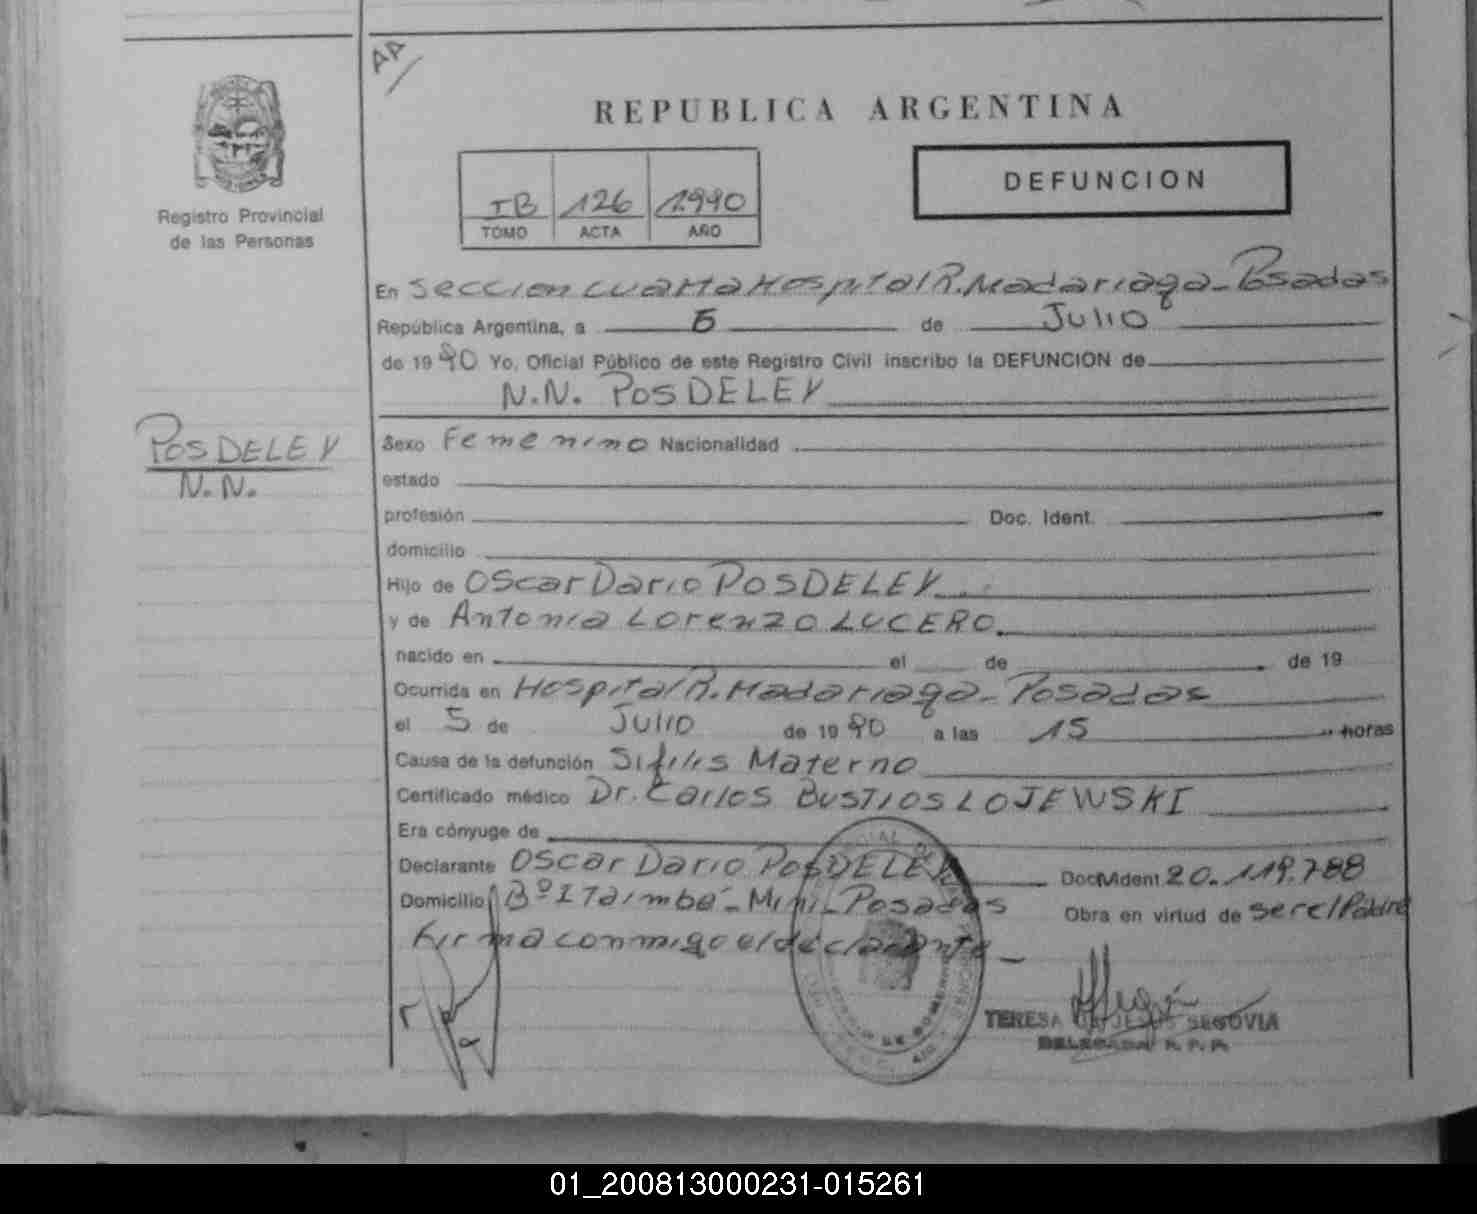 AA/
REPUBLICA ARGENTINA
DEFUNCION
IB 126 1990
TOMO ACTA AÑO
Registro Provincial
de las Personas
En Seccion cuarta Hospital R. Madariaga - Posadas
República Argentina, a 5 de Julio
de 1990 Yo, Oficial Público de este Registro Civil inscribo la DEFUNCION de
N.N. POSDELEY
POSDELEY
N.N.
Sexo Femenino Nacionalidad
estado
profesión Doc. Ident.
domicilio
Hijo de Oscar Dario POSDELEY
y de Antonia Lorenzo LUCERO
nacido en el de de 19
Ocurrida en Hospital R. Madariaga - Posadas
el 5 de Julio de 1990 a las 15 horas
Causa de la defunción Sifilis Materno
Certificado médico Dr. Carlos BUSTIOS LOJEWSKI
Era cónyuge de
Declarante Oscar Dario POSDELEY Doc. Ident. 20.119.788
Domicilio Bº Itaimbé - Mini - Posadas Obra en virtud de ser el Padre
Firma conmigo el declarante
TERESA DE JESUS SEGOVIA
DELEGADA R.P.P.
01_200813000231-015261